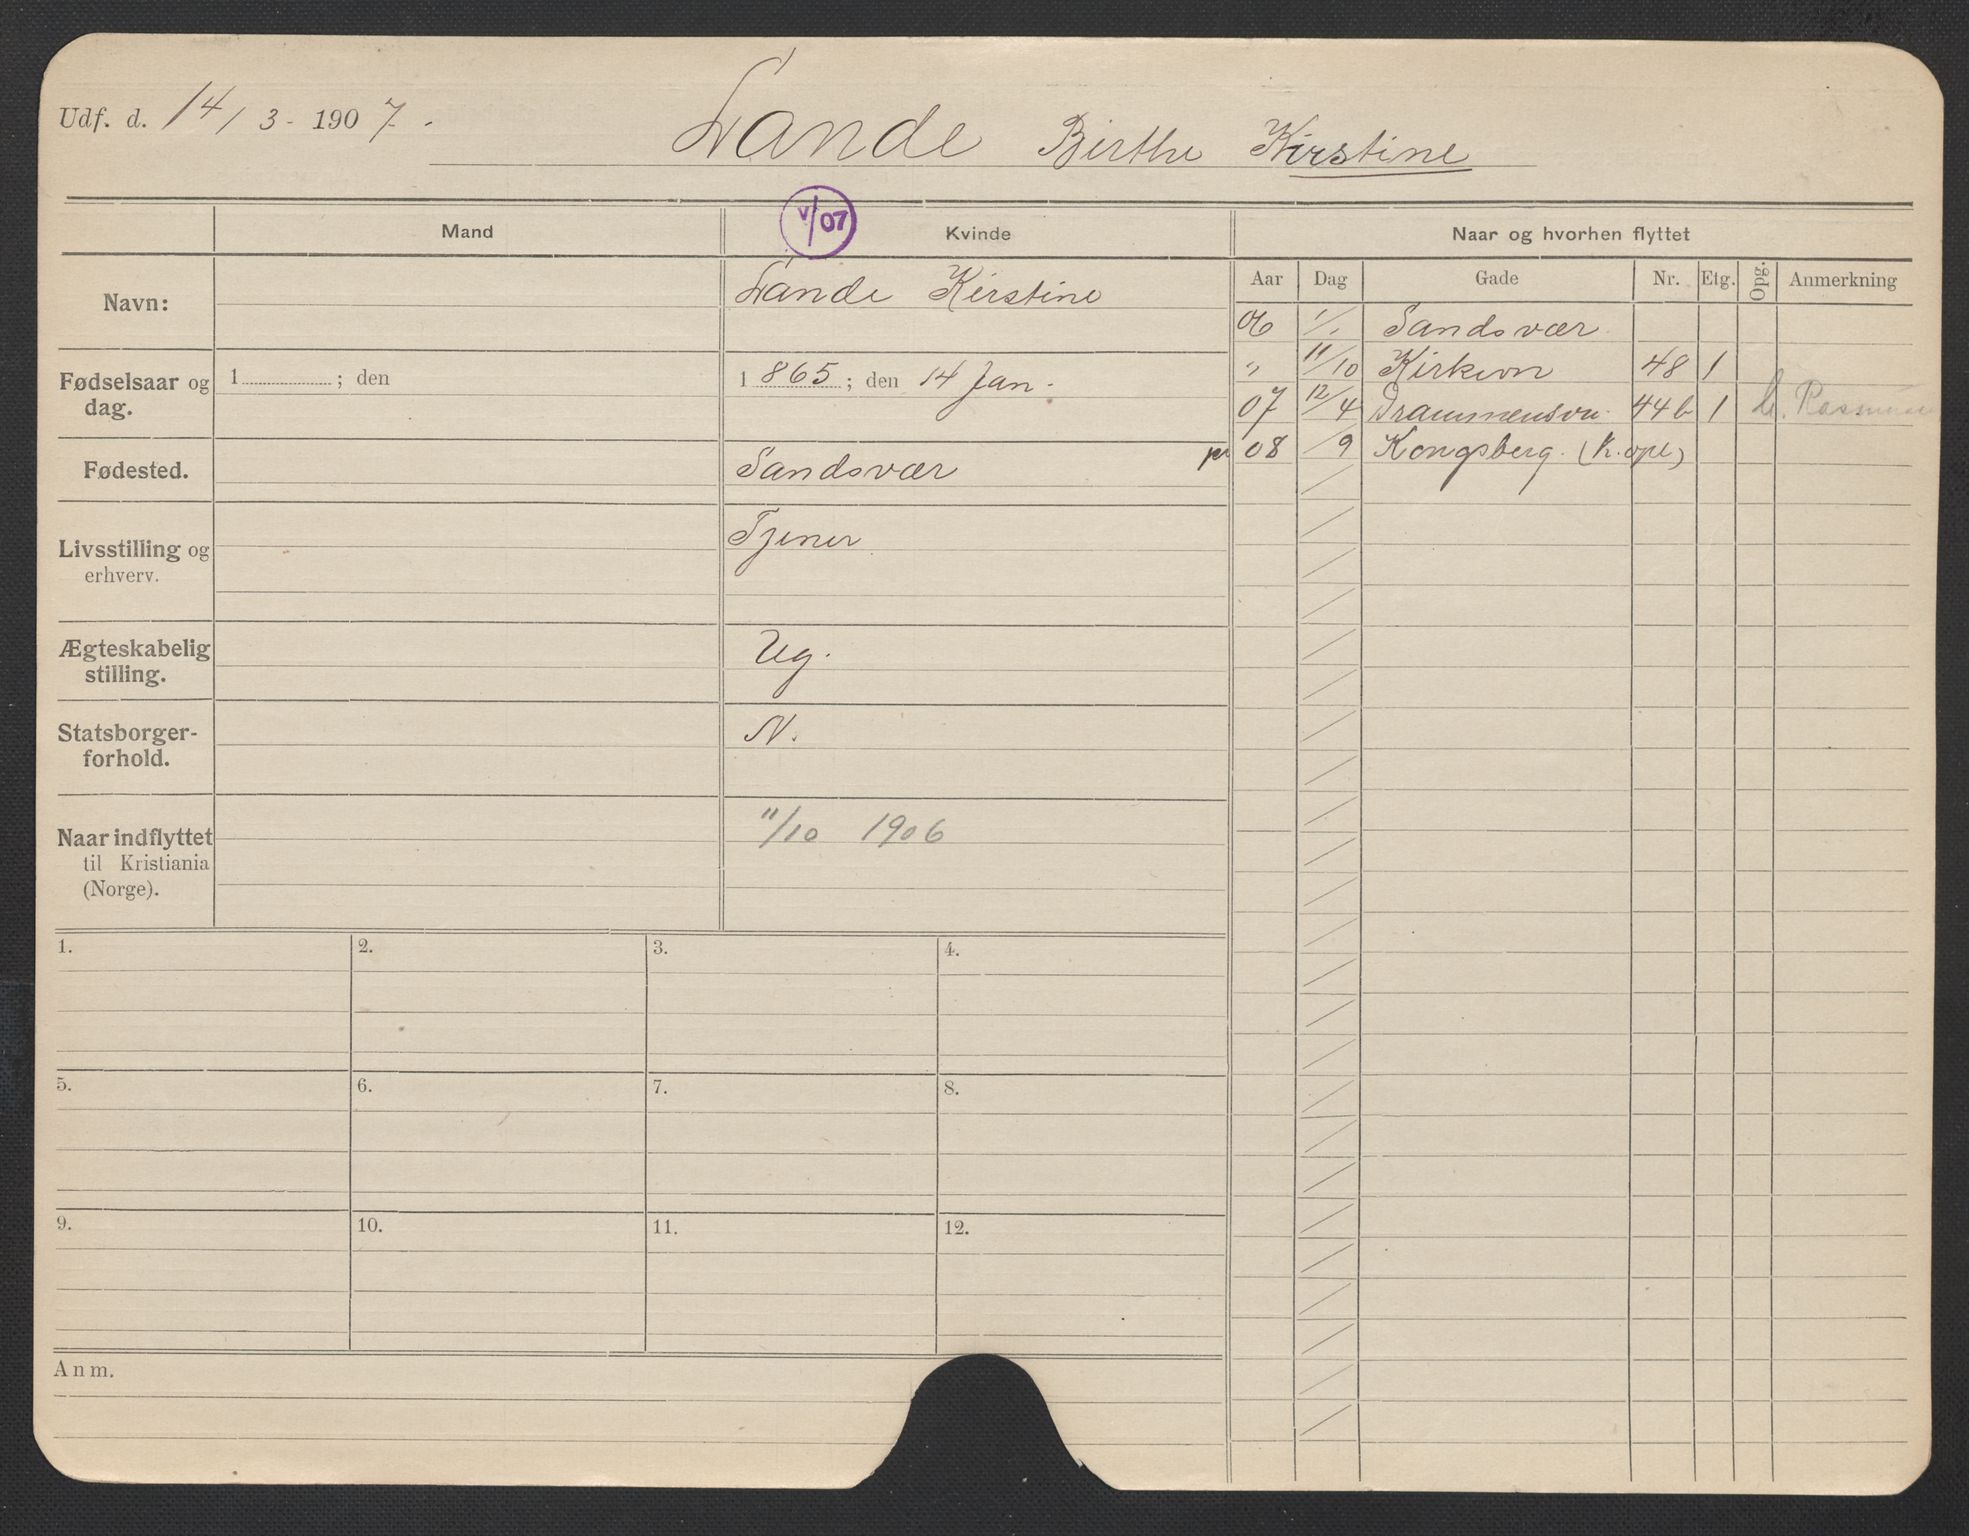 Udf. d. 14/3 - 1907.
Lande Birthe Kirstine
Mand
V/07
Kvinde
Navn:
Lande Kirstine
Fødselsaar og
dag.
1 ; den
1865 ; den 14 Jan.
Fødested.
Sandsvær
Livsstilling og
erhverv.
Tjener
Ægteskabelig
stilling.
Ug.
Statsborger-
forhold.
N.
Naar indflyttet
til Kristiania
(Norge).
11/10 1906
Naar og hvorhen flyttet
Aar Dag Gade Nr. Etg. Opg. Anmerkning
06 1/1 Sandsvær
" 11/10 Kirkevn 48 1
07 12/4 Drammensvn. 44b 1
08 /9 Kongsberg. (k.opl)
1. 2. 3. 4.
5. 6. 7. 8.
9. 10. 11. 12.
Anm.